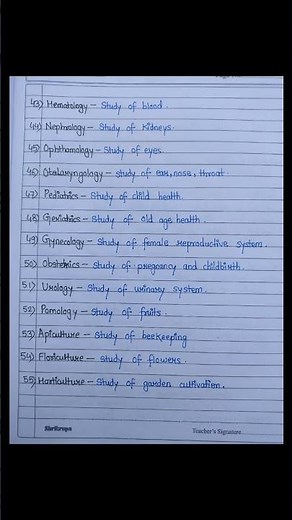 43) Hematology – Study of blood.
44) Nephrology – Study of Kidneys.
45) Ophthamology – Study of eyes.
46) Otolaryngology – study of ear, nose, throat.
47) Pediatrics – Study of child health.
48) Geriatrics – Study of old age health.
49) Gynecology – Study of female reproductive system.
50) Obstetrics – Study of pregnancy and childbirth.
51) Urology – Study of urinary system.
52) Pomology – Study of fruits.
53) Apiculture – Study of beekeeping
54) Floriculture – study of flowers.
55) Horticulture – Study of garden cultivation.
Shrikrupa Teacher's Signature